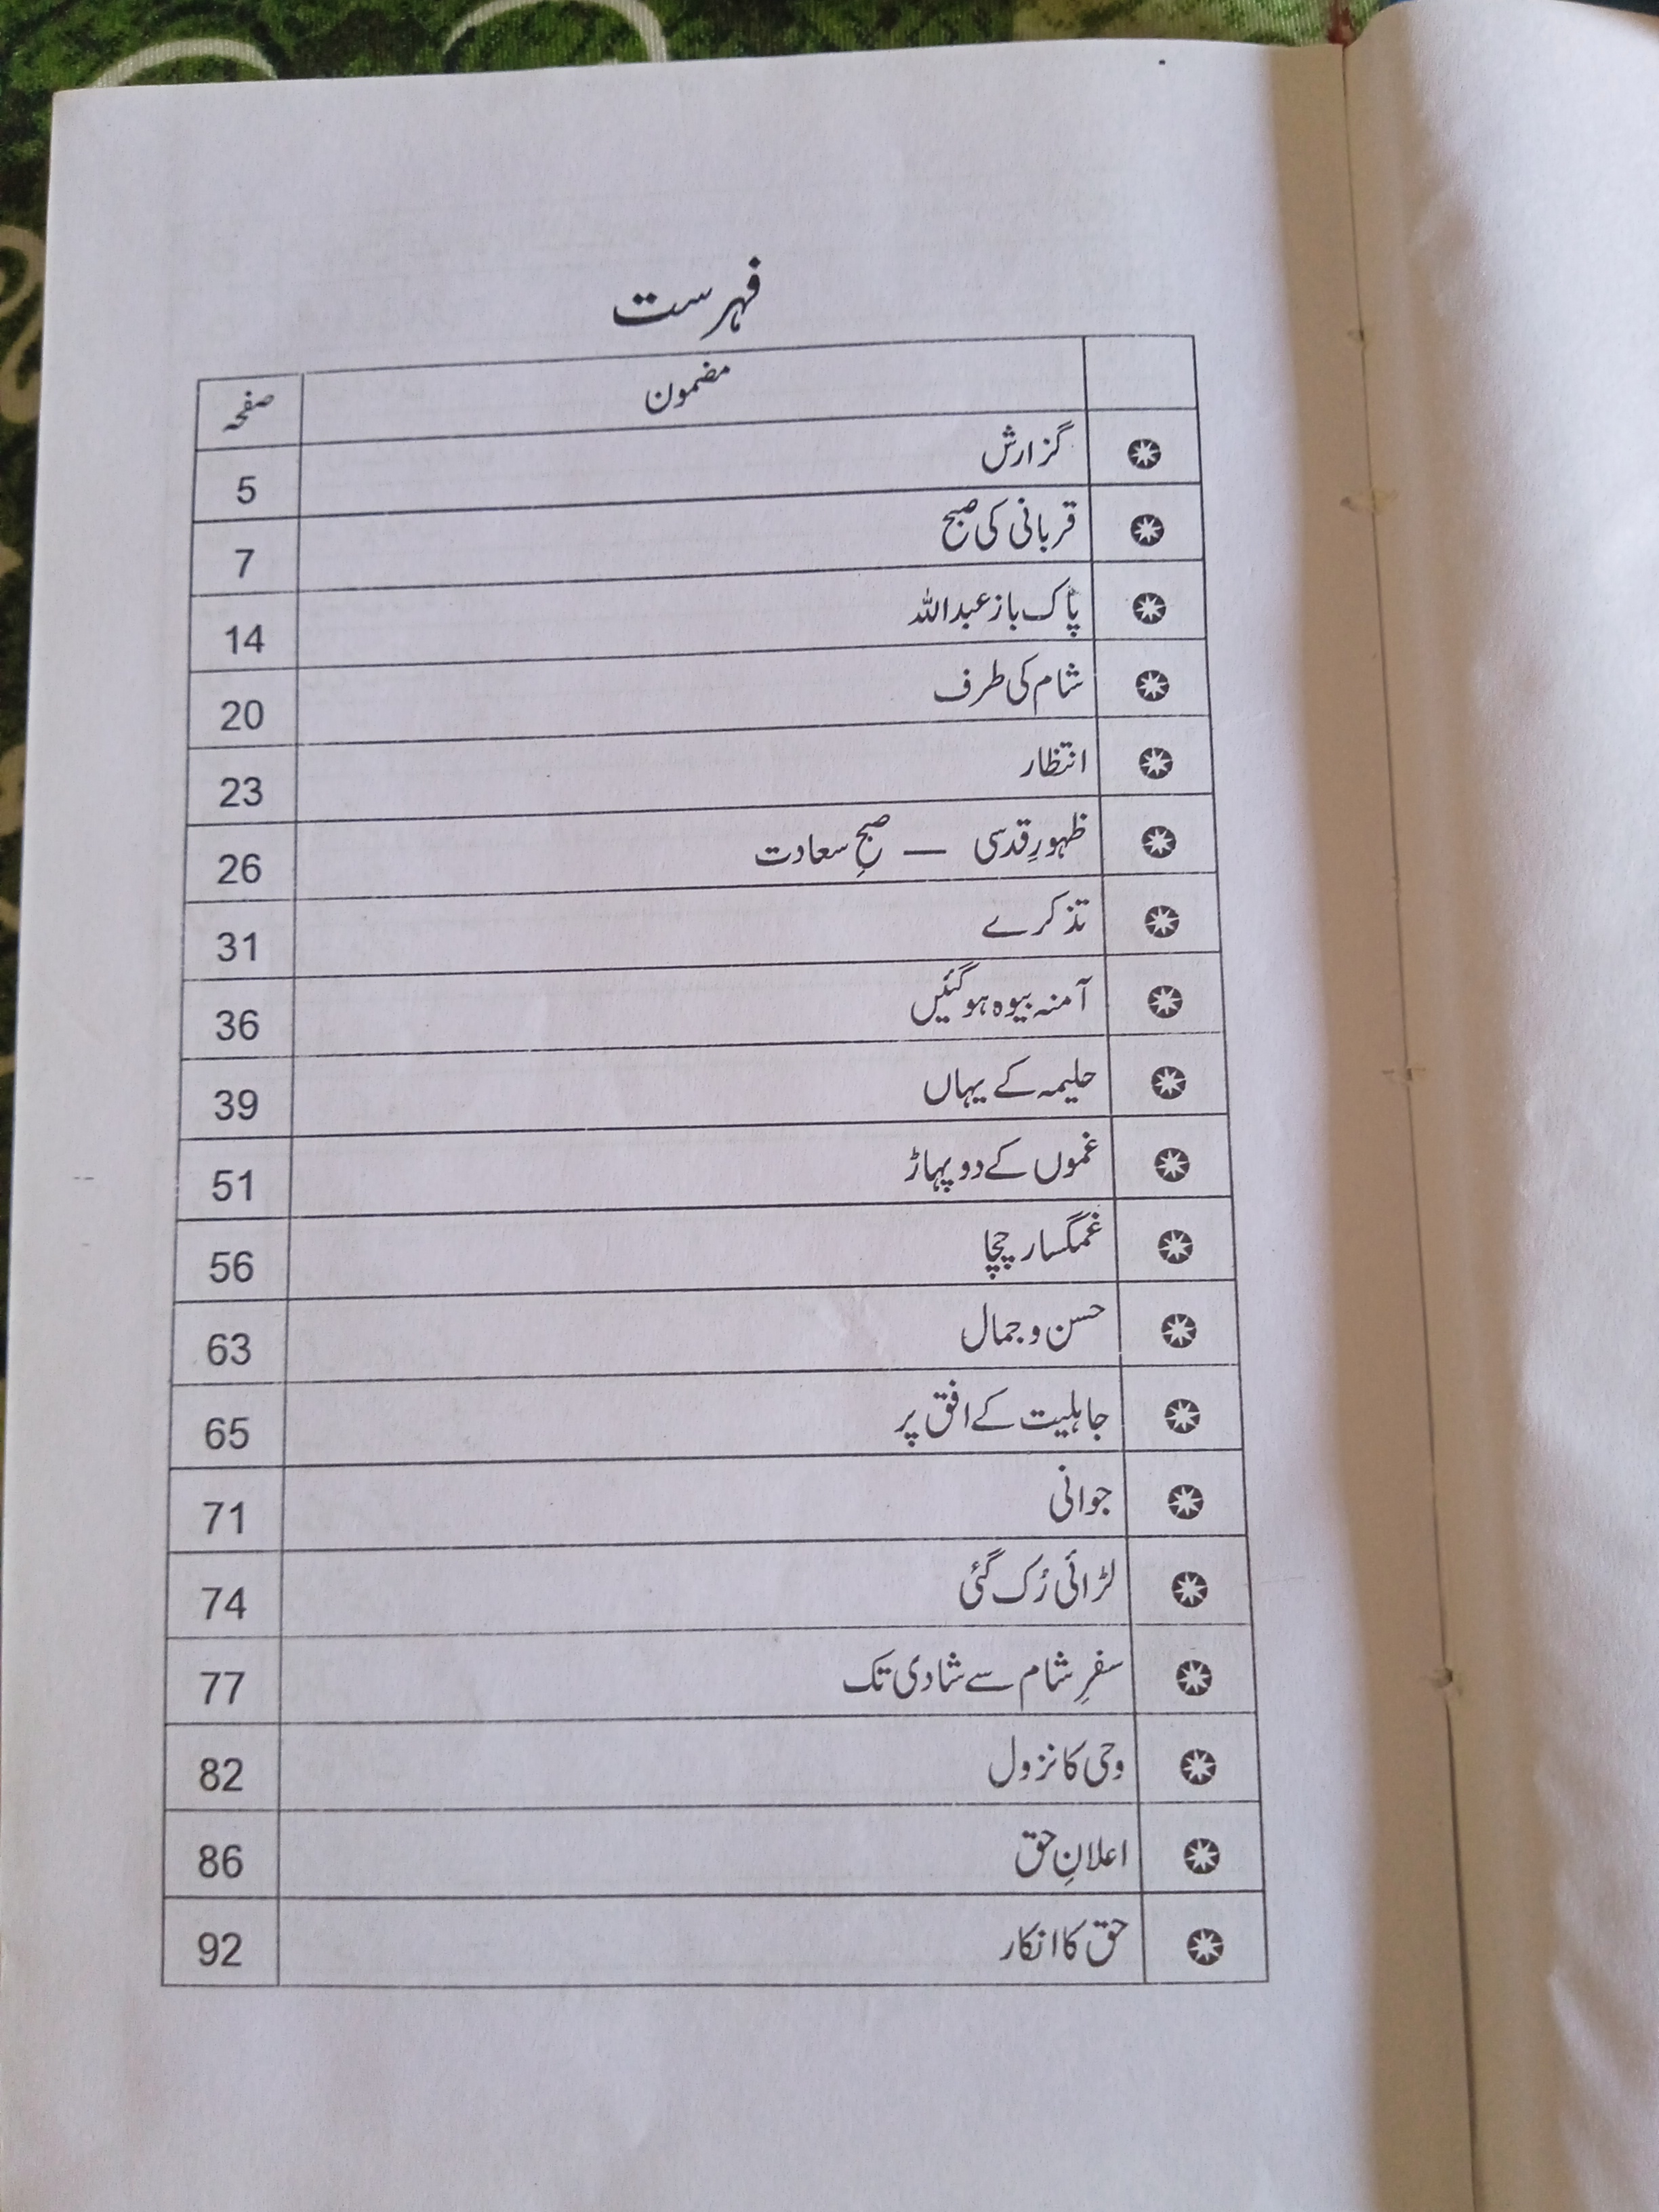 فہرست
مضمون صفحہ
گزارش 5
قربانی کی صبح 7
پاک باز عبداللہ 14
شام کی طرف 20
انتظار 23
ظہورِ قدسی — صبحِ سعادت 26
تذکرے 31
آمنہ بیوہ ہوگئیں 36
حلیمہ کے یہاں 39
غموں کے دو پہاڑ 51
غمگسار چچا 56
حسن و جمال 63
جاہلیت کے افق پر 65
جوانی 71
لڑائی رُک گئی 74
سفرِ شام سے شادی تک 77
وحی کا نزول 82
اعلانِ حق 86
حق کا انکار 92